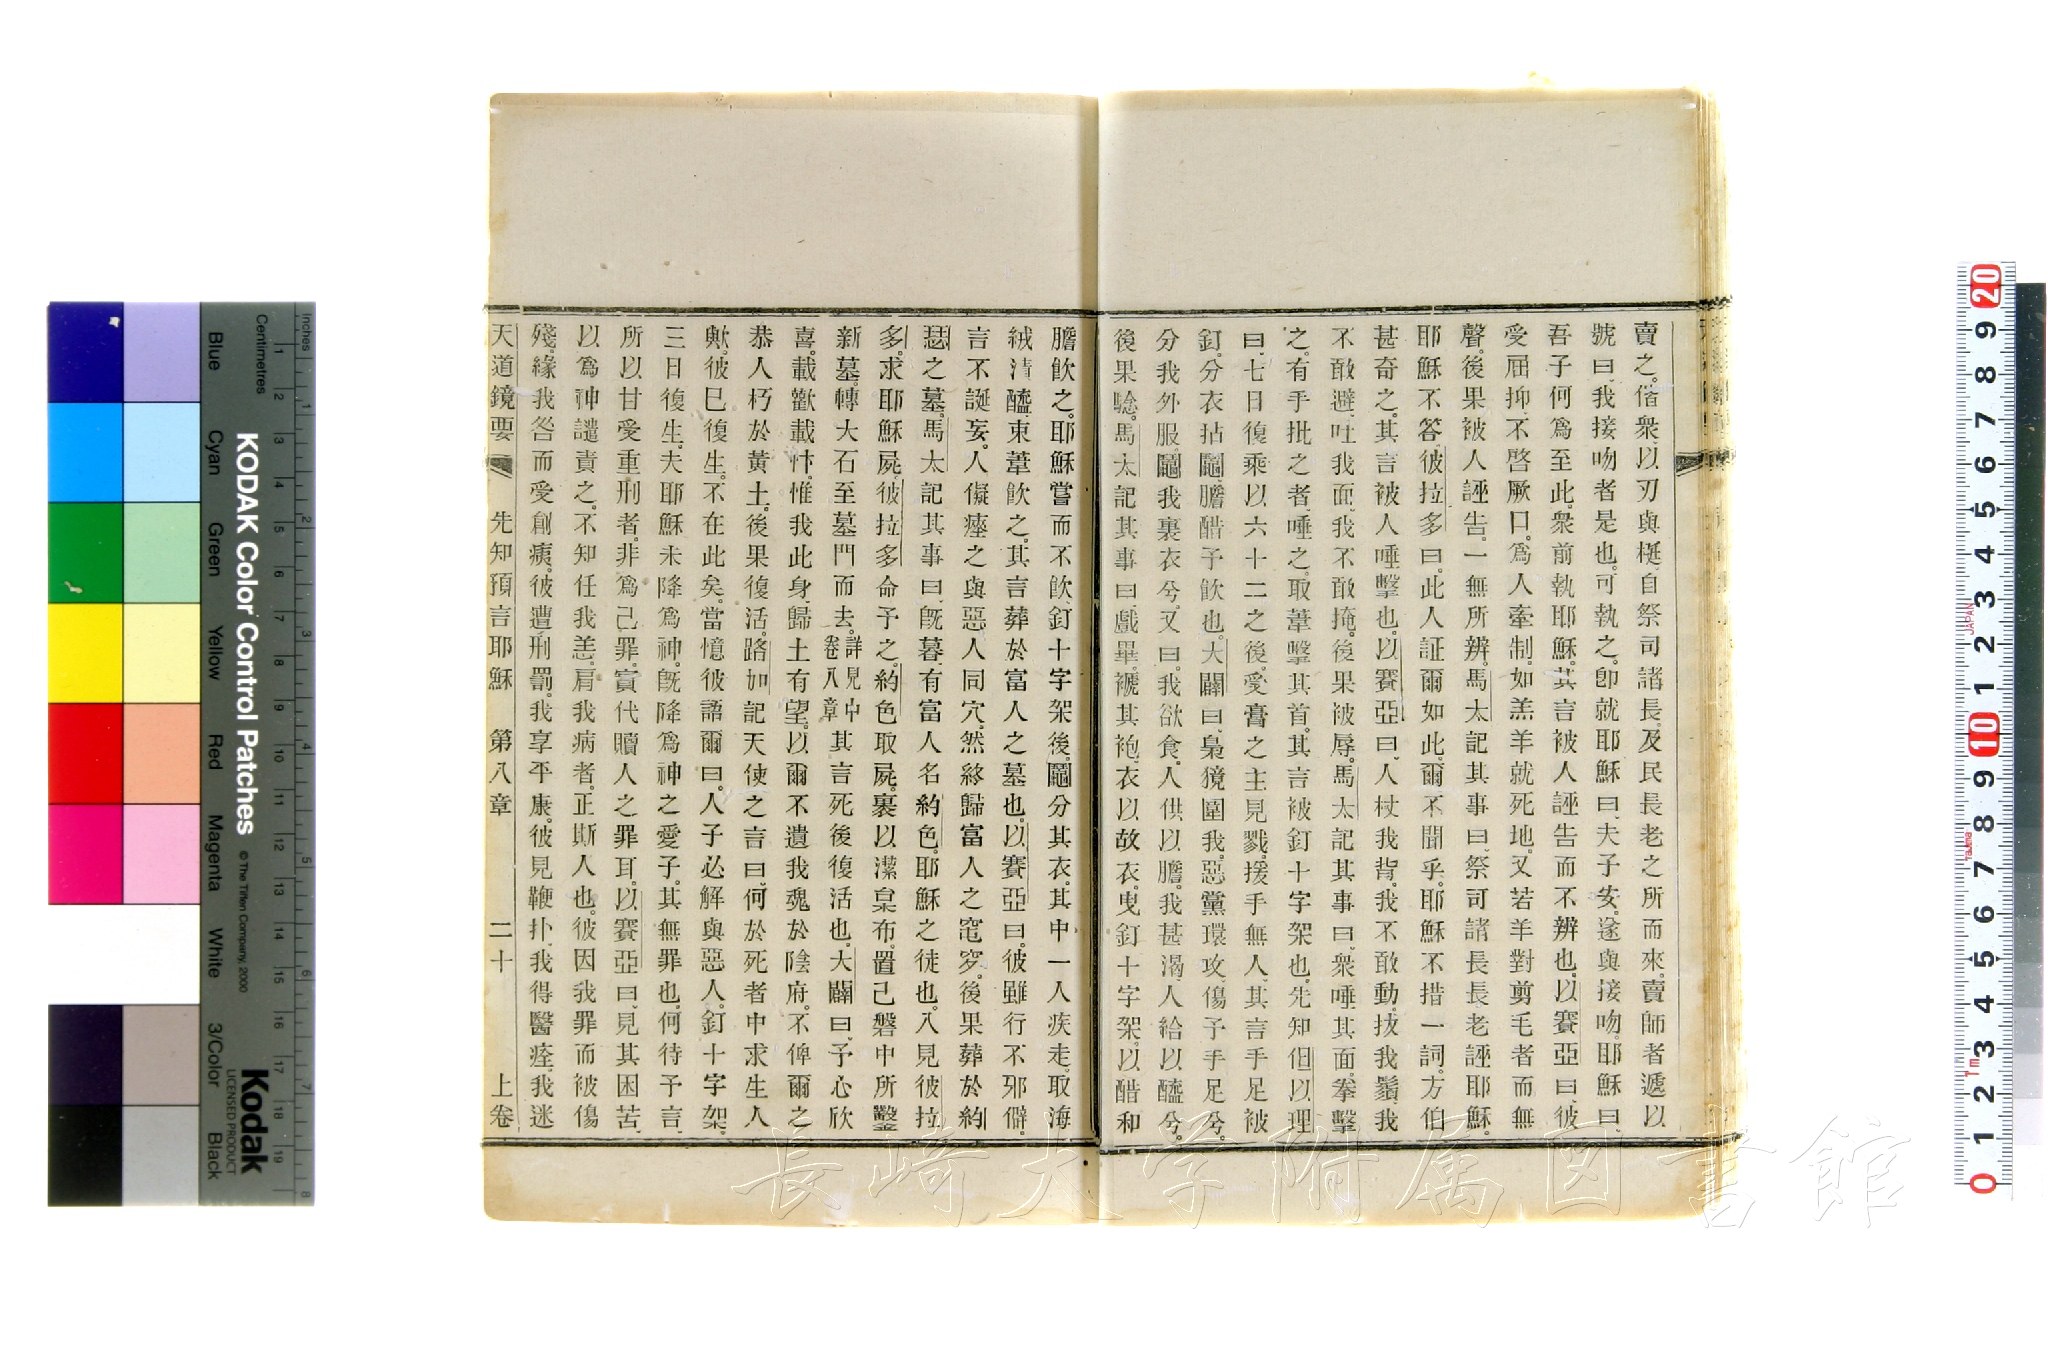 賣之。偕衆、以刃與梃、自祭司諸長、及民長老之所而來。賣師者遞以
號曰、我接吻者是也。可執之。卽就耶穌曰、夫子安。遂與接吻。耶穌曰、
吾子何爲至此。衆前執耶穌。其言被人誣告而不辨也。以賽亞曰、彼
受屈抑、不啓厥口。爲人牽制。如羔羊就死地。又若羊對剪毛者而無
聲。後果被人誣告。一無所辨。馬太記其事曰、祭司諸長長老誣耶穌。
耶穌不答。彼拉多曰、此人証爾如此、爾不聞乎。耶穌不措一詞。方伯
甚奇之。其言被人唾擊也。以賽亞曰、人杖我背。我不敢動。拔我鬚。我
不敢避。吐我面。我不敢掩。後果被辱。馬太記其事曰、衆唾其面。拳擊
之。有手批之者、唾之。取葦擊其首。其言被釘十字架也。先知但以理
曰、七日復乘以六十二之後、受膏之主見戮。援手無人。其言手足被
釘。分衣拈鬮。膽醋予飲也。大闢曰、梟獍圍我。惡黨環攻。傷予手足兮。
分我外服。鬮我裏衣兮。又曰、我欲食、人供以膽。我甚渴、人給以醯兮。
後果驗。馬太記其事曰、戲畢、褫其袍。衣以故衣。曳釘十字架。以醋和
膽飲之。耶穌嘗而不飲。釘十字架後、鬮分其衣。其中一人疾走、取海
絨漬醯、束葦飲之。其言葬於富人之墓也。以賽亞曰、彼雖行不邪僻。
言不誕妄。人儗瘞之與惡人同穴。然終歸富人之窀穸。後果葬於約
瑟之墓。馬太記其事曰、旣暮、有富人名約色。耶穌之徒也。入見彼拉
多。求耶穌屍。彼拉多命予之。約色取屍。裹以潔枲布。置己磐中所鑿
新墓。轉大石至墓門而去。詳見中卷八章其言死後復活也。大闢曰、予心欣
喜。載歡載忭。惟我此身、歸土有望。以爾不遺我魂於陰府。不俾爾之
恭人朽於黃土。後果復活。路加記天使之言曰、何於死者中求生人
歟。彼已復生。不在此矣。當憶彼語爾曰、人子必解與惡人。釘十字架。
三日復生。夫耶穌未降爲神。旣降爲神之愛子。其無罪也、何待予言。
所以甘受重刑者、非爲己罪。實代贖人之罪耳。以賽亞曰、見其困苦。
以爲神譴責之。不知任我恙。肩我病者。正斯人也。彼因我罪而被傷
殘。緣我咎而受創痍。彼遭刑罰。我享平康。彼見鞭扑。我得醫痊。我迷
天道鏡要 先知預言耶穌 第八章 二十 上卷
長崎大学附属図書館
KODAK Color Control Patches
© The Tiffen Company, 2000
Kodak
LICENSED PRODUCT
Inches
Centimetres
Blue
Cyan
Green
Yellow
Red
Magenta
White
3/Color
Black
JAPAN